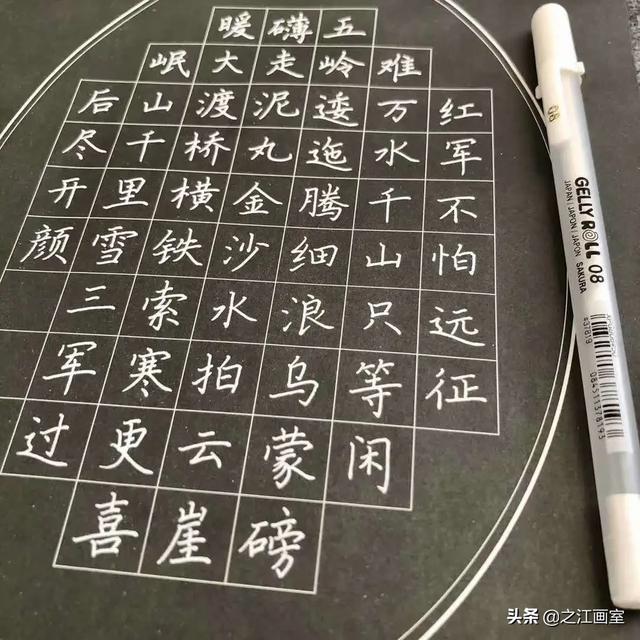 红军不怕远征
难万水千山只等闲
五岭逶迤腾细浪乌蒙磅
礴走泥丸金沙水拍云崖
暖大渡桥横铁索寒更喜
岷山千里雪三军过
后尽开颜
08
GELLY ROLL 08
JAPAN | JAPON | JAPÓN SAKURA
#37819
084511378193
头条 @之江画室